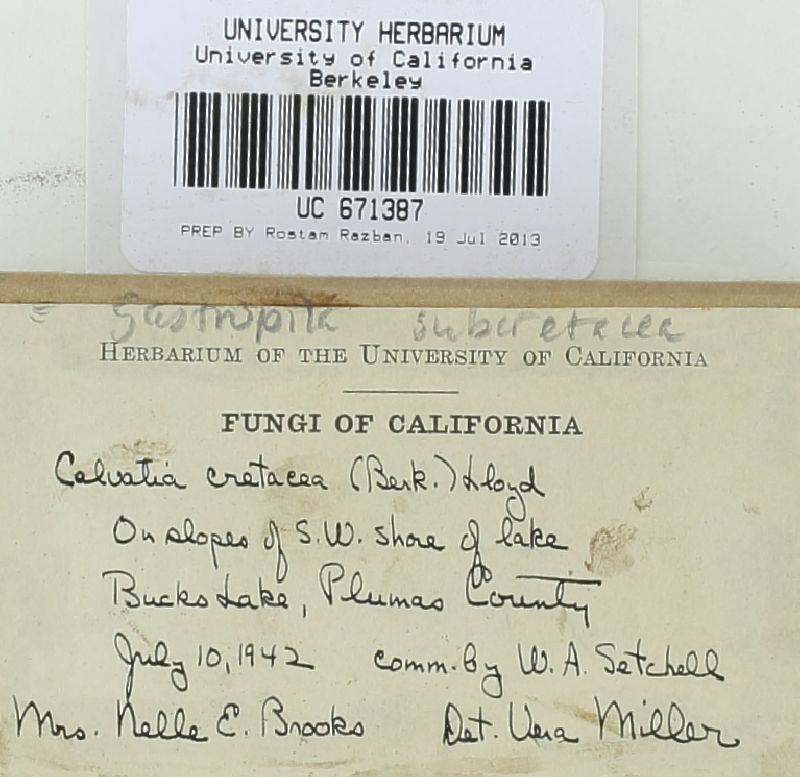 UNIVERSITY HERBARIUM
University of California
Berkeley
UC 671387
PREP BY Rostam Razban, 19 Jul 2013
= Gastropila subcretacea
HERBARIUM OF THE UNIVERSITY OF CALIFORNIA
FUNGI OF CALIFORNIA
Calvatia cretacea (Berk.) Lloyd
On slopes of S.W. shore of lake
Bucks Lake, Plumas County
July 10, 1942 comm. by W. A. Setchell
Mrs. Nelle E. Brooks Det. Vera Miller